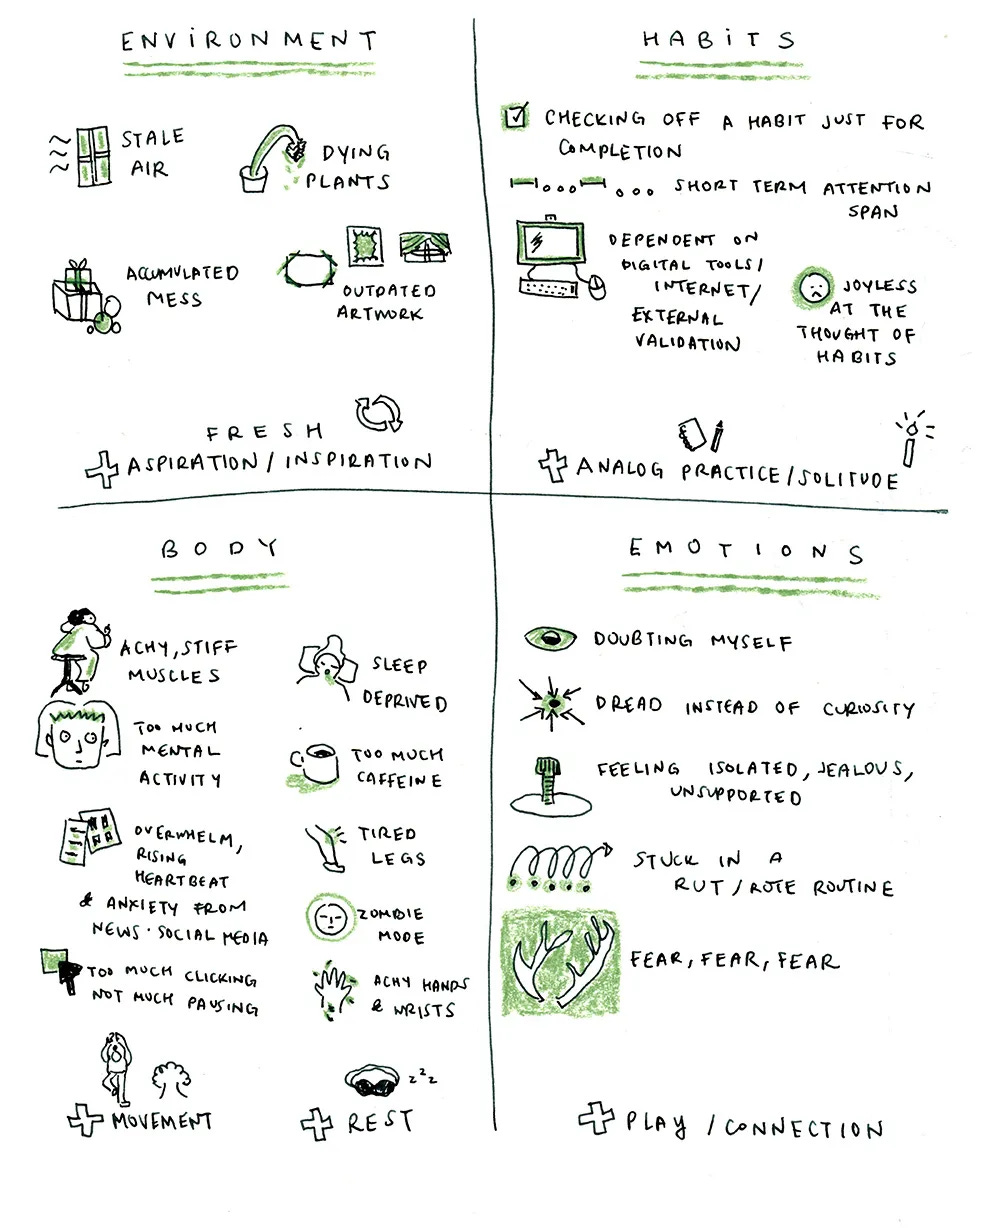 ENVIRONMENT
STALE
AIR
DYING
PLANTS
ACCUMULATED
MESS
OUTDATED
ARTWORK
FRESH
ASPIRATION / INSPIRATION
HABITS
CHECKING OFF A HABIT JUST FOR
COMPLETION
SHORT TERM ATTENTION
SPAN
DEPENDENT ON
DIGITAL TOOLS/
INTERNET/
EXTERNAL
VALIDATION
JOYLESS
AT THE
THOUGHT OF
HABITS
ANALOG PRACTICE/SOLITUDE
BODY
ACHY, STIFF
MUSCLES
SLEEP
DEPRIVED
TOO MUCH
MENTAL
ACTIVITY
TOO MUCH
CAFFEINE
OVERWHELM,
RISING
HEARTBEAT
& ANXIETY FROM
NEWS · SOCIAL MEDIA
TIRED
LEGS
ZOMBIE
MODE
TOO MUCH CLICKING
NOT MUCH PAUSING
ACHY HANDS
& WRISTS
MOVEMENT
zzz
REST
EMOTIONS
DOUBTING MYSELF
DREAD INSTEAD OF CURIOSITY
FEELING ISOLATED, JEALOUS,
UNSUPPORTED
STUCK IN A
RUT / ROTE ROUTINE
FEAR, FEAR, FEAR
PLAY / CONNECTION